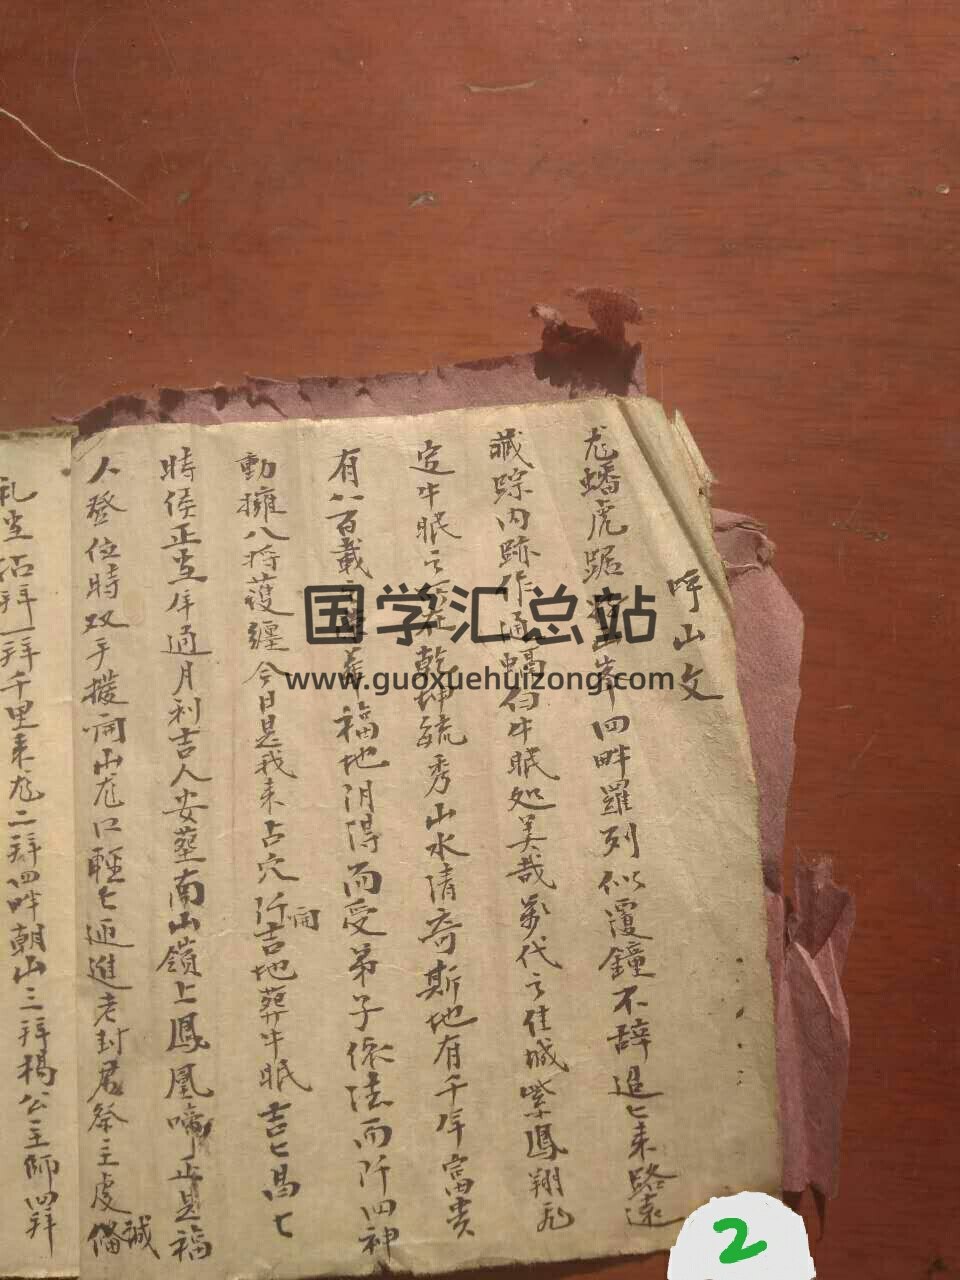 呼山文
龙蟠虎踞 峯四畔羅列似覆鐘不辞迢〻来路遠
藏踪内跡作通 何牛眠处美哉萬代之佳城紫鳳翔飛
定牛眠之所在乾坤毓秀山水清奇斯地有千年富貴
有八百載之 福地阴得而受弟子依法而阡四神
動擁八將護纏今日是我来占穴阡開吉地葬牛眠吉〻昌〻
時侯正当年通月利吉人安塟南山嶺上鳳凰啼正是福
人登位時双手撥開山龙口輕〻迊進老封君祭主虔誠俻
礼当活拜一拜千里来龙二拜四畔朝山三拜楊公主师四拜
国学汇总站
www.guoxuehuizong.com
2